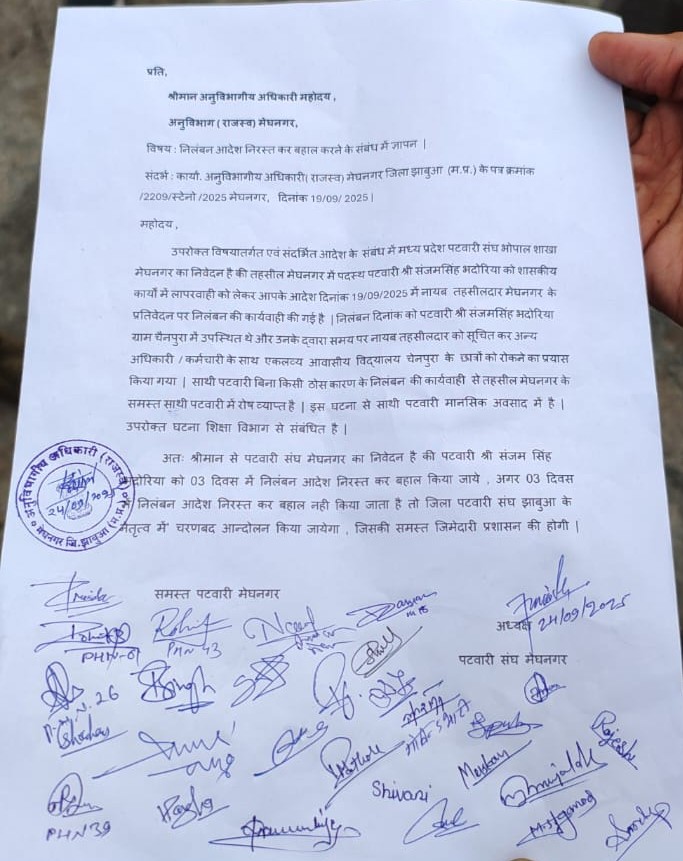 प्रति,
श्रीमान अनुविभागीय अधिकारी महोदय ,
अनुविभाग ( राजस्व) मेघनगर,
विषय : निलंबन आदेश निरस्त कर बहाल करने के संबंध में ज्ञापन |
संदर्भ : कार्या. अनुविभागीय अधिकारी( राजस्व) मेघनगर जिला झाबुआ (म.प्र.) के पत्र क्रमांक
/2209/स्टेनो /2025 मेघनगर, दिनांक 19/09/ 2025 |
महोदय ,
उपरोक्त विषयातर्गत एवं संदर्भित आदेश के संबंध में मध्य प्रदेश पटवारी संघ भोपाल शाखा
मेघनगर का निवेदन है की तहसील मेघनगर में पदस्थ पटवारी श्री संजमसिंह भदोरिया को शासकीय
कार्यो में लापरवाही को लेकर आपके आदेश दिनांक 19/09/2025 में नायब तहसीलदार मेघनगर के
प्रतिवेदन पर निलंबन की कार्यवाही की गई है | निलंबन दिनांक को पटवारी श्री संजमसिंह भदोरिया
ग्राम चैनपुरा में उपस्थित थे और उनके द्वारा समय पर नायब तहसीलदार को सूचित कर अन्य
अधिकारी / कर्मचारी के साथ एकलव्य आवासीय विद्यालय चेनपुरा के छात्रों को रोकने का प्रयास
किया गया | साथी पटवारी बिना किसी ठोस कारण के निलंबन की कार्यवाही से तहसील मेघनगर के
समस्त साथी पटवारी में रोष व्याप्त है | इस घटना से साथी पटवारी मानसिक अवसाद में है |
उपरोक्त घटना शिक्षा विभाग से संबंधित है |
अतः श्रीमान से पटवारी संघ मेघनगर का निवेदन है की पटवारी श्री संजम सिंह
भदोरिया को 03 दिवस में निलंबन आदेश निरस्त कर बहाल किया जाये , अगर 03 दिवस
में निलंबन आदेश निरस्त कर बहाल नही किया जाता है तो जिला पटवारी संघ झाबुआ के
नेतृत्व में चरणबद आन्दोलन किया जायेगा , जिसकी समस्त जिमेदारी प्रशासन की होगी |
अनुविभागीय अधिकारी (राजस्व)
24/09/2025
मेघनगर जि. झाबुआ (म.प्र.)
समस्त पटवारी मेघनगर
अध्यक्ष 24/09/2025
पटवारी संघ मेघनगर
Rohit
PHN 43
PHN-01
N. 26
Singh
Rathore
Shivani
Muskan
Rajesh
PHN 39